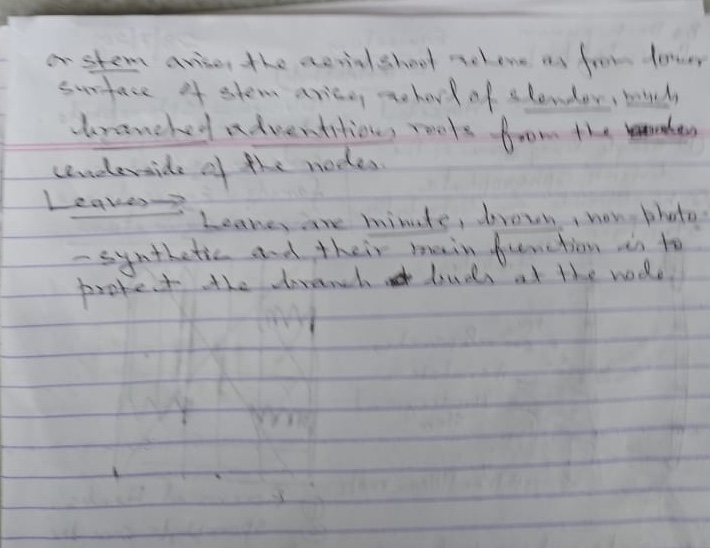 or stem arises the aerial shoot where as from lower
surface of stem arises a whorl of slender, much
branched adventitious roots from the
underside of the nodes.
Leaves →
Leaves are minute, brown, non-photo-
-synthetic and their main function is to
protect the branch buds at the node